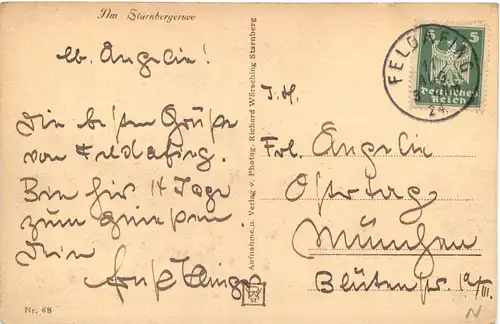 Am Starnbergersee
lb. Angelie!
Die besten Grüße
von Feldafing.
Bin hir 14 Tage
zum
Dein
Aufnahme u. Verlag v. Photog. Richard Wörsching Starnberg
Nr. 68
FELDAFING
24.
5
Deutsches
Reich
I. H.
Frl. Angelie
Ostertag
München
Blütenstr. 19/III.
N